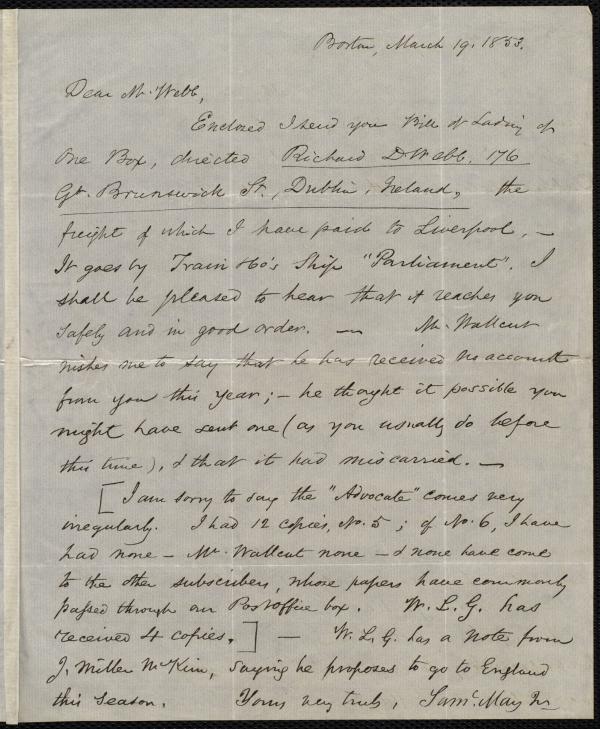 Boston, March 19. 1853.
Dear Mr. Webb,
Enclosed I send you Bill of Lading of
One Box, directed Richard D. Webb. 176
Gt. Brunswick St., Dublin, Ireland, the
freight of which I have paid to Liverpool. —
It goes by Train & Co's Ship "Parliament". I
shall be pleased to hear that it reaches you
safely and in good order. — Mr. Wallcut
wishes me to say that he has received no account
from you this year; — he thought it possible you
might have sent one (as you usually do before
this time), & that it had miscarried. —
[I am sorry to say the "Advocate" comes very
irregularly. I had 12 copies, No. 5; of No. 6, I have
had none — Mr. Wallcut none — & none have come
to the other subscribers, whose papers have commonly
passed through our Postoffice box. W. L. G. has
received 4 copies.] — W. L. G. has a note from
J. Miller McKim, saying he proposes to go to England
this season. Yours very truly, Saml. May Jr